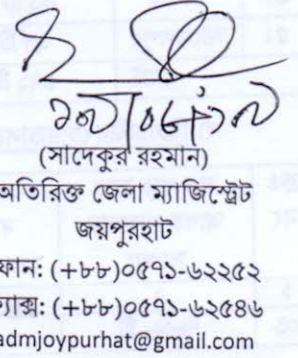 (সাদেকুর রহমান)
অতিরিক্ত জেলা ম্যাজিস্ট্রেট
জয়পুরহাট
ফোন: (+৮৮)০৫৭১-৬২২৫২
্যাক্স: (+৮৮)০৫৭১-৬২৫৪৬
admjoypurhat@gmail.com